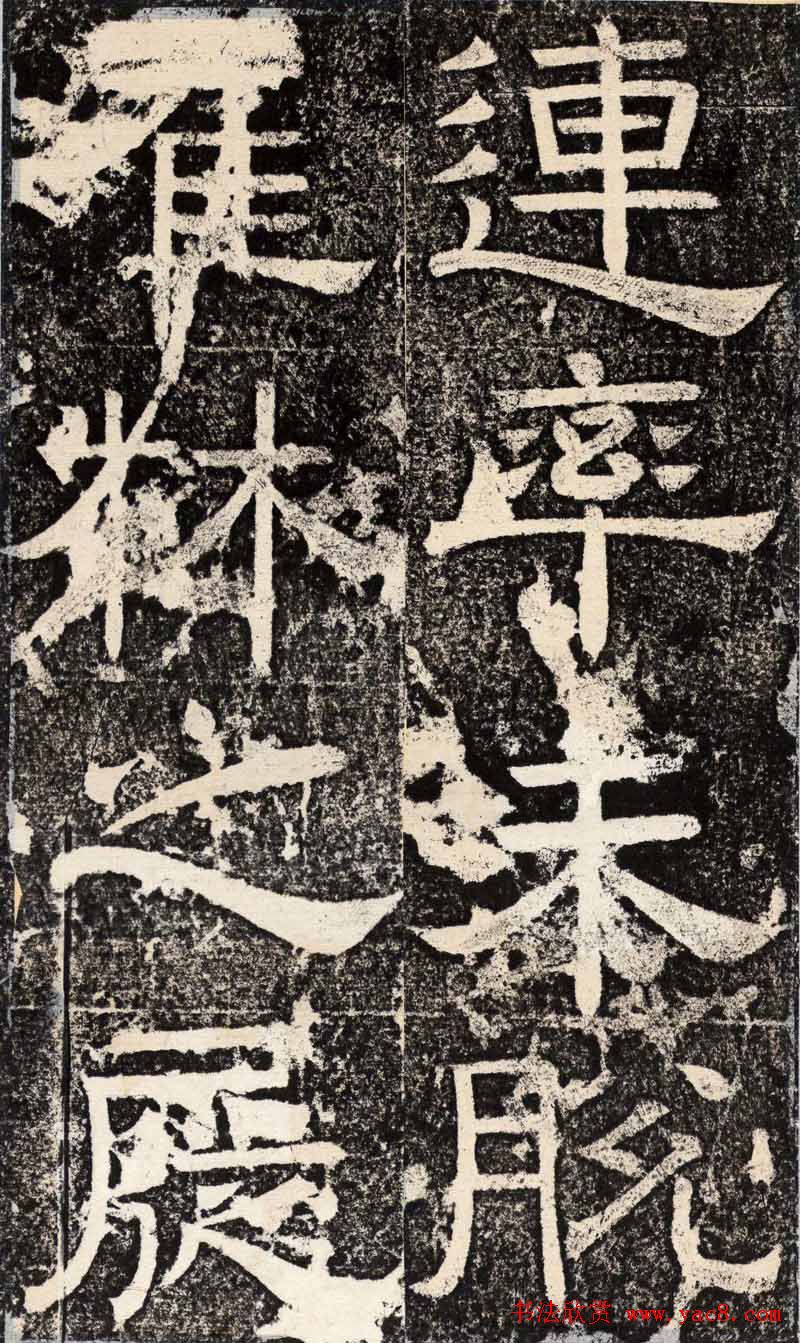 連率未脫
林之
书法欣赏 www.yac8.com